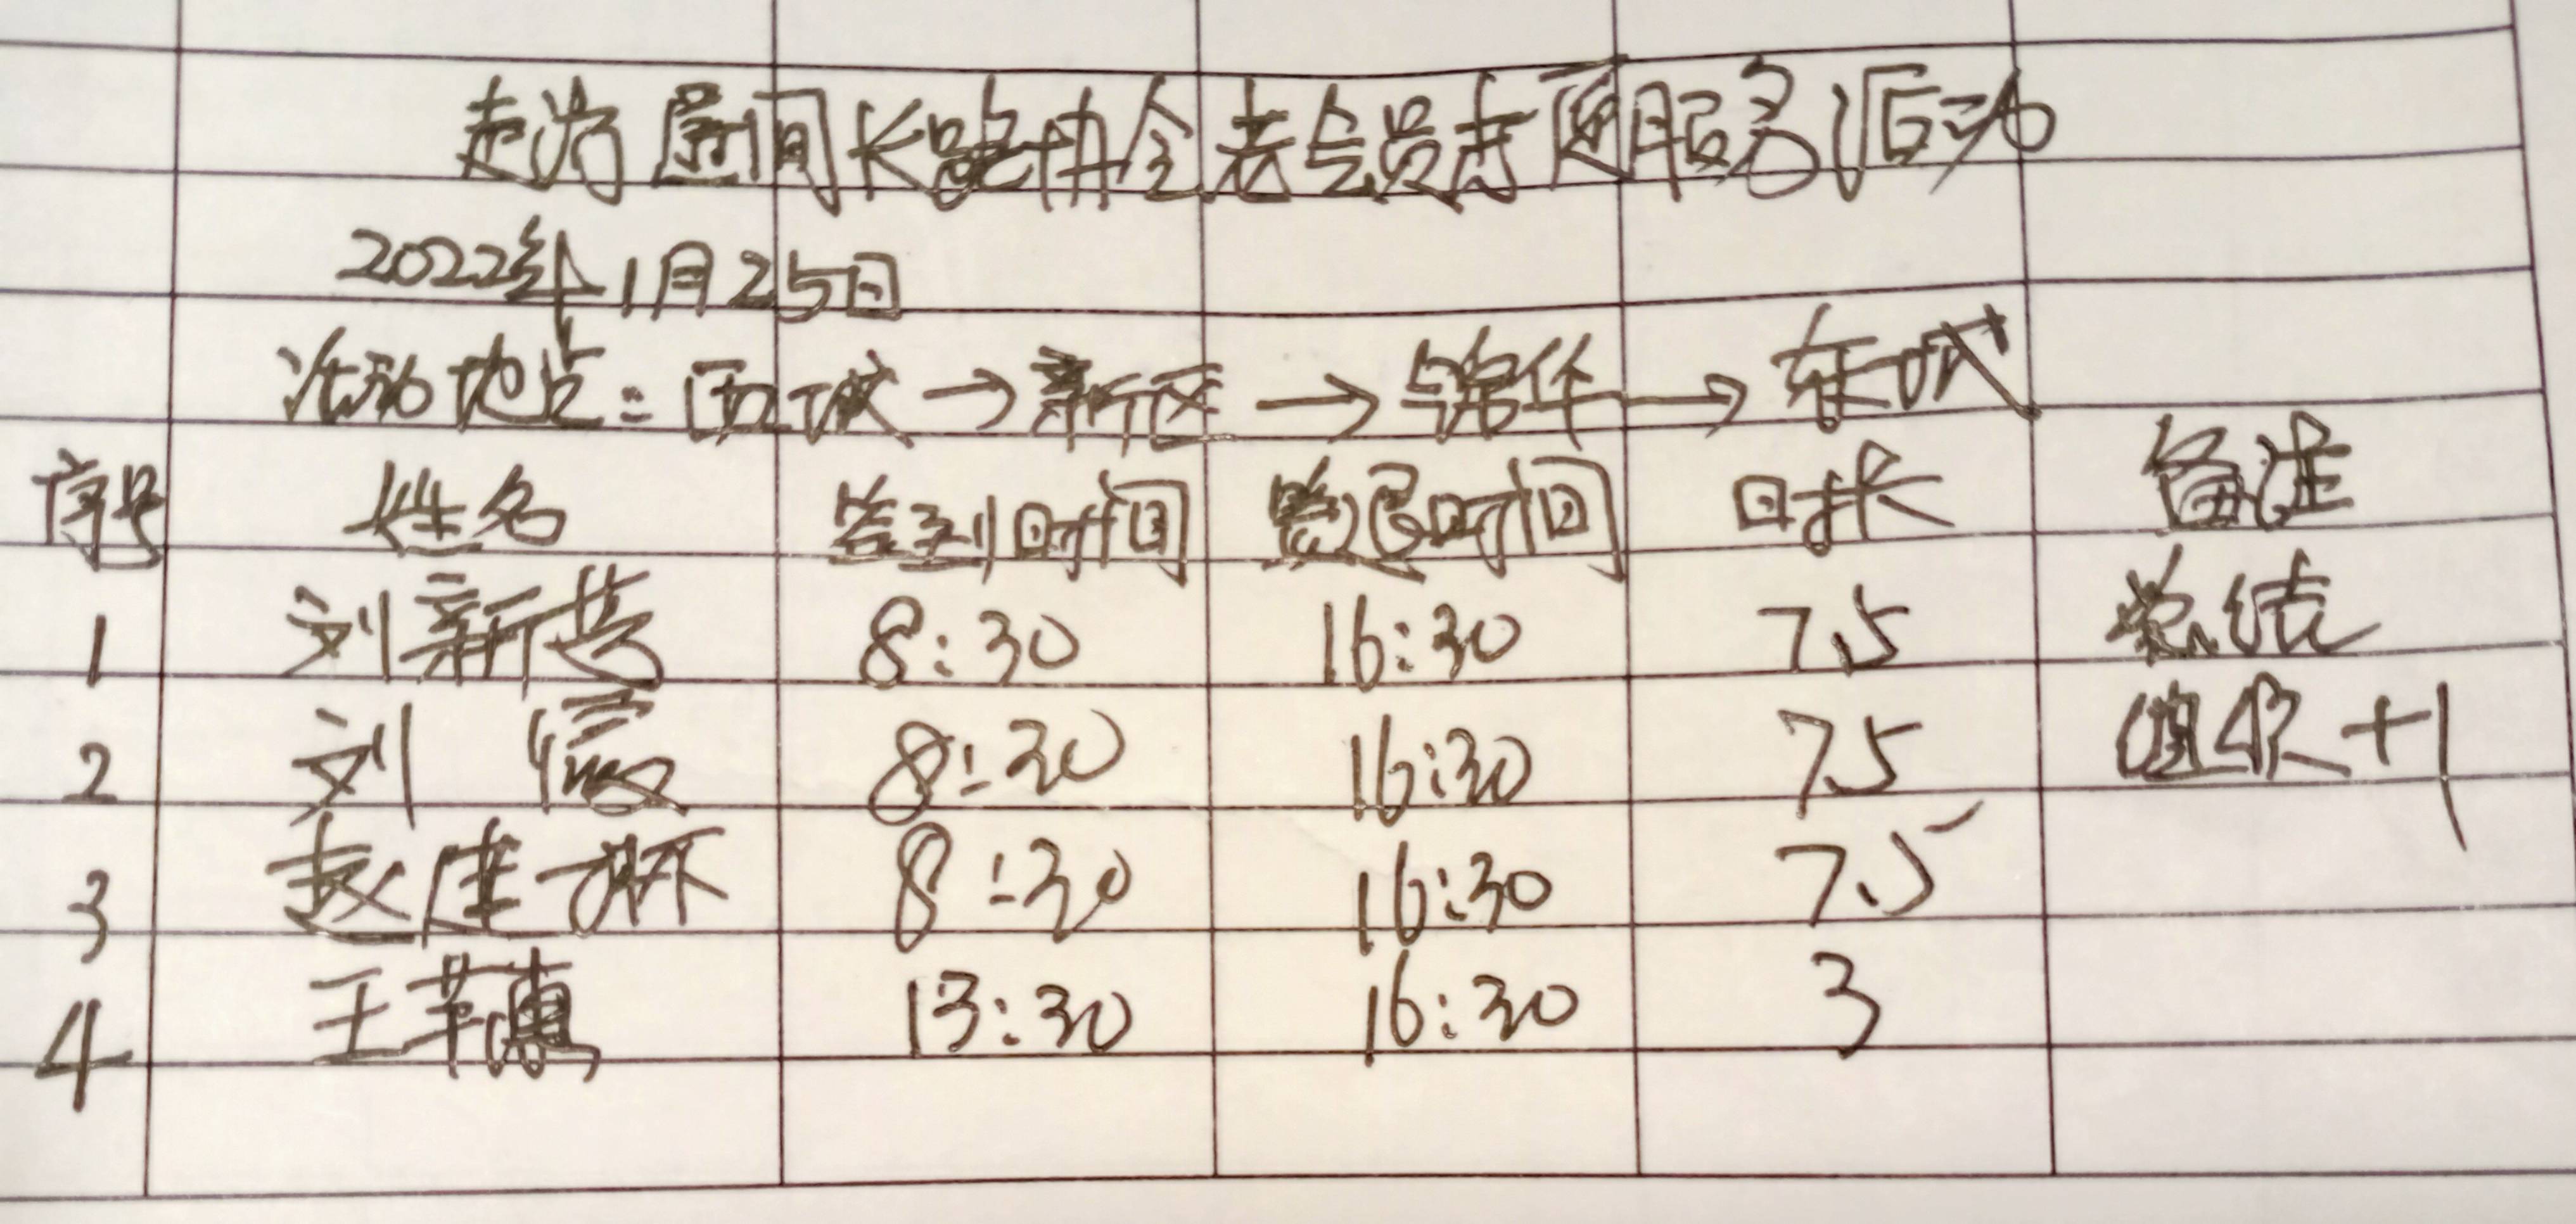 走访 居间长跑协会老会员志愿服务活动
2022年1月25日
活动地点：西城→新区→锦华→东城
序号 姓名 签到时间 签退时间 时长 备注
1 刘新芸 8:30 16:30 7.5 总结
2 刘 霞 8:30 16:30 7.5 +1
3 赵建环 8:30 16:30 7.5
4 王 13:30 16:30 3